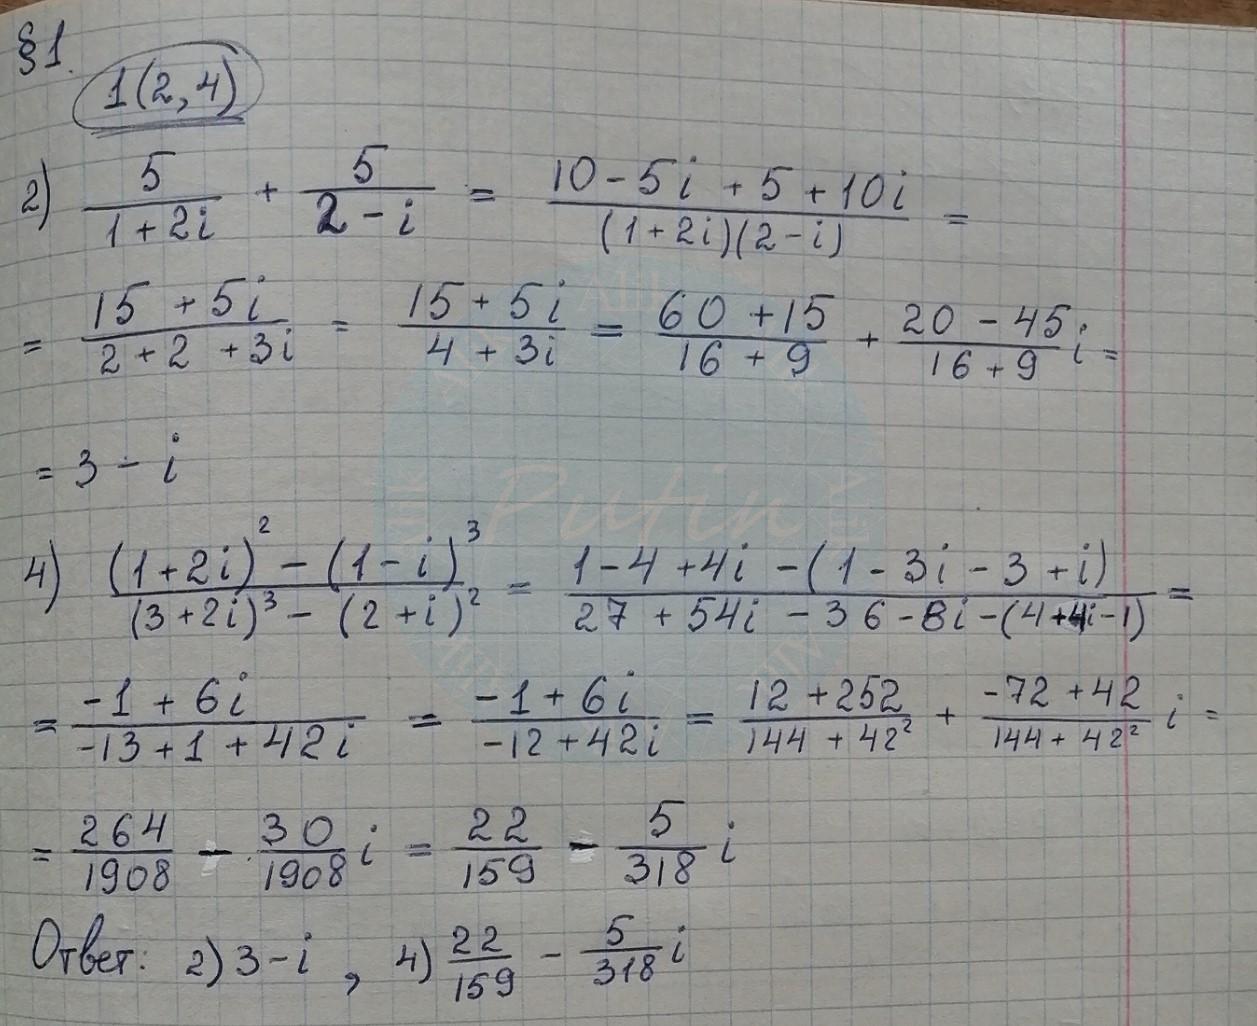 §1.
1(2,4)
2) 5/(1+2i) + 5/(2-i) = (10-5i+5+10i)/((1+2i)(2-i)) =
= (15+5i)/(2+2+3i) = (15+5i)/(4+3i) = (60+15)/(16+9) + (20-45)/(16+9) i =
= 3-i
4) ((1+2i)²-(1-i)³)/((3+2i)³-(2+i)²) = (1-4+4i-(1-3i-3+i))/(27+54i-36-8i-(4+4i-1)) =
= (-1+6i)/(-13+1+42i) = (-1+6i)/(-12+42i) = (12+252)/(144+42²) + (-72+42)/(144+42²) i =
= 264/1908 - 30/1908 i = 22/159 - 5/318 i
Ответ: 2) 3-i, 4) 22/159 - 5/318 i
Putin